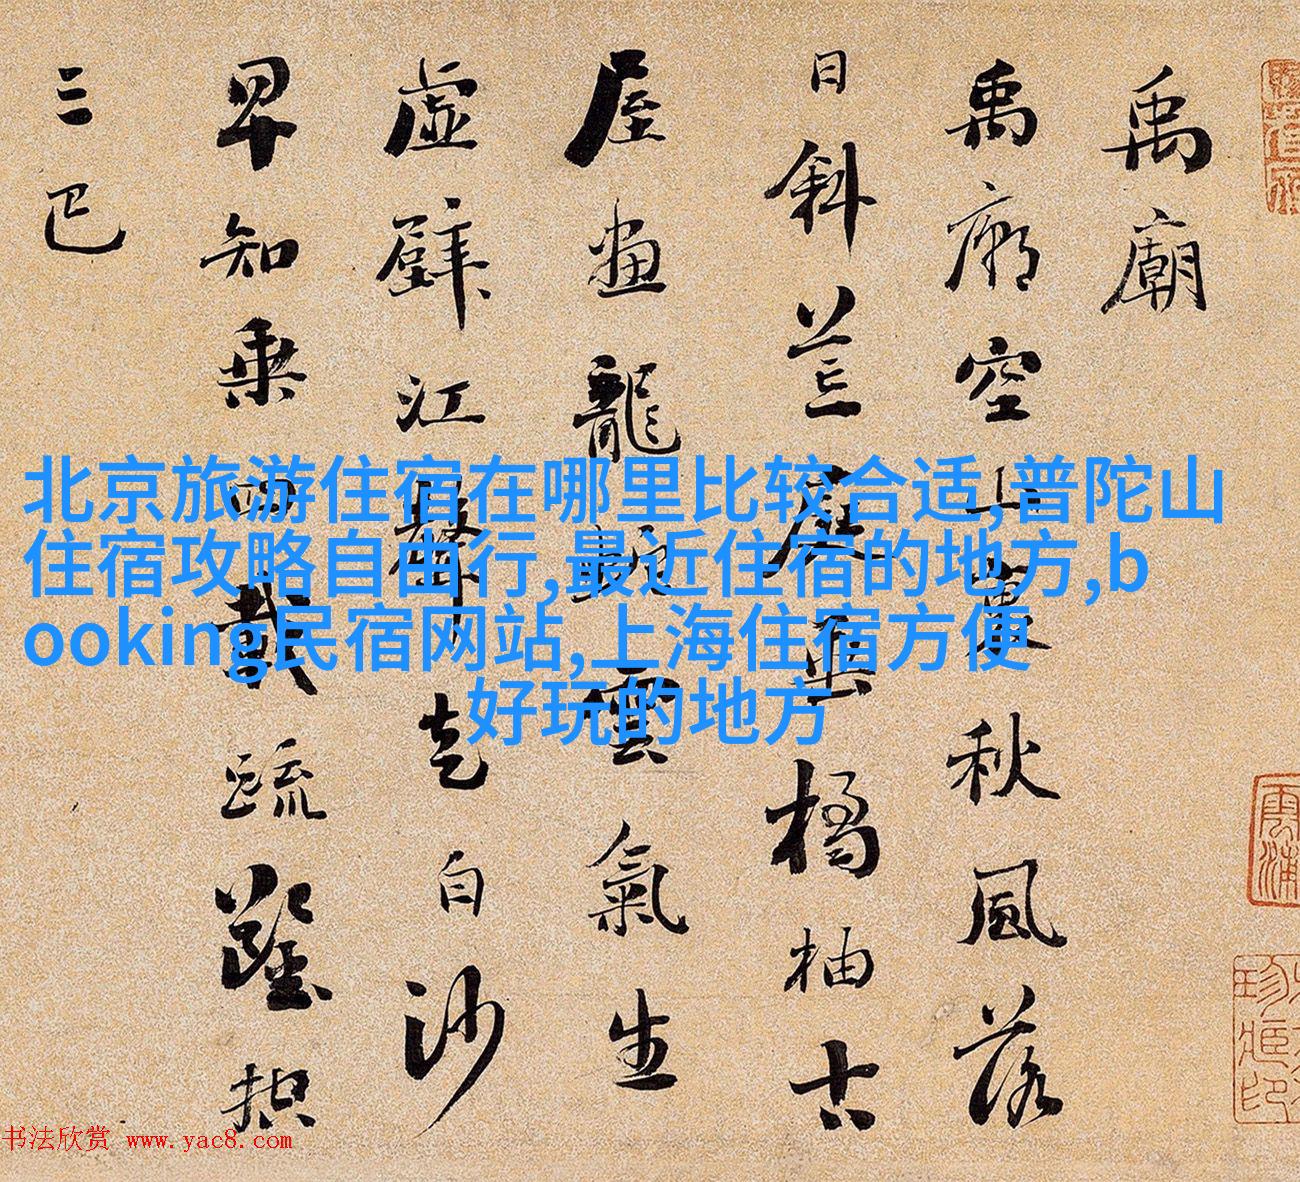 禹廟
禹廟空山裏秋風落
日斜荒庭垂橘柚古
屋畫龍蛇雲氣生
虛壁江聲走白沙
早知乘四載疏鑿控
三巴
北京旅游住宿在哪里比较合适,普陀山
住宿攻略自由行,最近住宿的地方,b
ooking民宿网站,上海住宿方便
好玩的地方
书法欣赏 www.yac8.com